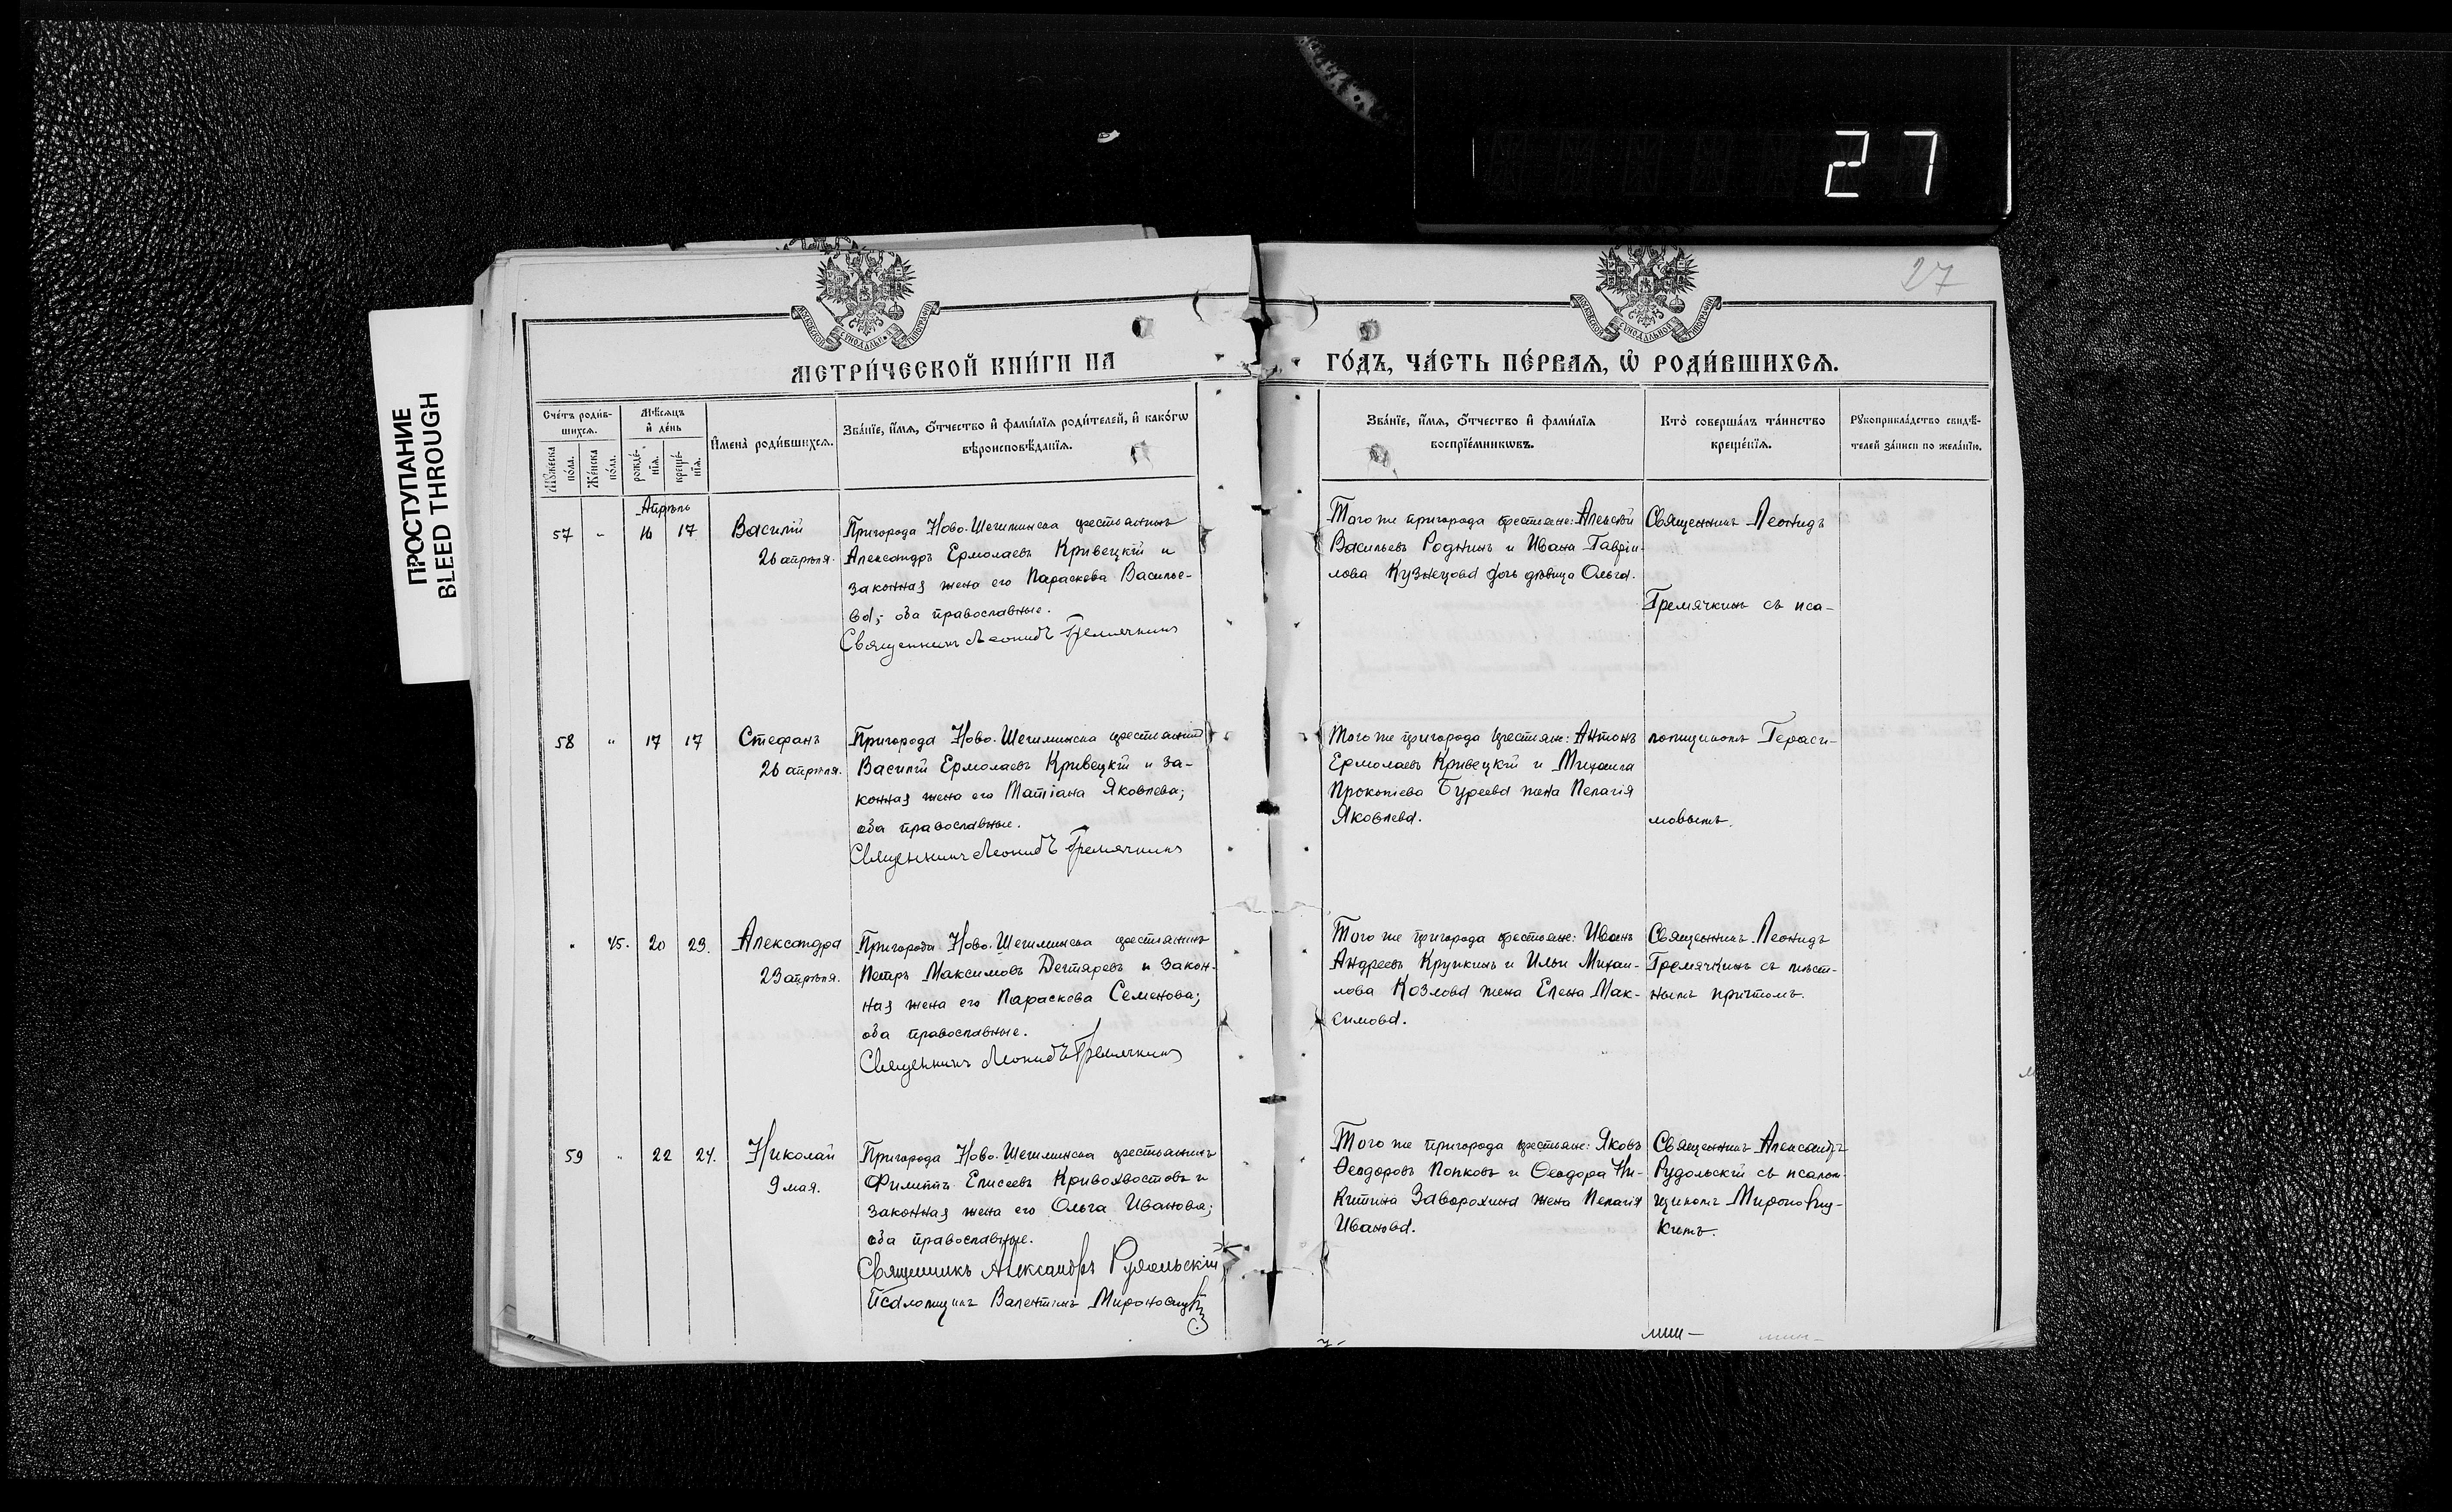 27
ПРОСТУПАНИЕ
BLEED THROUGH
27
МЕТРИ́ЧЕСКОЙ КНИ́ГИ НА
ГО́ДЪ, ЧА́СТЬ ПЕ́РВАѦ, Ѡ҆ РОДИ́ВШИХСѦ.
Сче́тъ роди́в-
шихсѧ.
Мѣ́сѧцъ
и҆ де́нь
И҆мена̀ роди́вшихсѧ.
Зва́нїе, и҆́мѧ, ѻ҆́тчество и҆ фами́лїѧ роди́телей, и҆ како́гѡ
вѣроисповѣ́данїѧ.
Мꙋ́жеска
по́ла.
Же́нска
по́ла.
рожде́-
нїѧ.
креще́-
нїѧ.
Зва́нїе, и҆́мѧ, ѻ҆́тчество и҆ фами́лїѧ
воспрїе́мникѡвъ.
Кто̀ соверша́лъ та́инство
креще́нїѧ.
Рꙋкоприкла́дство свидѣ́-
телей за́писи по жела́нїю.
Апрѣль
57 " 16 17 Василій
26 апрѣля.
Пригорода Ново-Шешминска крестьянинъ
Александръ Ермолаевъ Кривецкій и
законная жена его Параскева Василье-
ва; оба православные.
Священникъ Леонидъ Гремячкинъ
Того же пригорода крестьяне: Алексѣй
Васильевъ Роднинъ и Ивана Гаврiи-
лова Кузнецова дочь дѣвица Ольга.
Священникъ Леонидъ
Гремячкинъ съ пса-
58 " 17 17 Стефанъ
26 апрѣля.
Пригорода Ново-Шешминска крестьянинъ
Василій Ермолаевъ Кривецкій и за-
конная жена его Татіана Яковлева;
оба православные.
Священникъ Леонидъ Гремячкинъ
Того же пригорода крестьяне: Антонъ
Ермолаевъ Кривецкій и Михаила
Прокопіева Буреева жена Пелагія
Яковлева.
ломщикомъ Гераси-
мовымъ.
" 45. 20 23. Александра
23 апрѣля.
Пригорода Ново-Шешминска крестьянинъ
Петръ Максимовъ Дегтяревъ и закон-
ная жена его Параскева Семенова;
оба православные.
Священникъ Леонидъ Гремячкинъ
Того же пригорода крестьяне: Иванъ
Андреевъ Крупкинъ и Ильи Михаи-
лова Козлова жена Елена Мак-
симова.
Священникъ Леонидъ
Гремячкинъ съ мѣст-
нымъ причтомъ.
59 " 22 24. Николай
9 мая.
Пригорода Ново-Шешминска крестьянинъ
Филиппъ Елисеевъ Кривохвостовъ и
законная жена его Ольга Иванова;
оба православные.
Священникъ Александръ Рудольскій
Псаломщикъ Валентинъ
Того же пригорода крестьяне: Яковъ
Ѳеодоровъ Попковъ и Ѳеодора Ни-
китина Заворохина жена Пелагія
Иванова.
Священникъ Александръ
Рудольскій съ псалом-
щикомъ